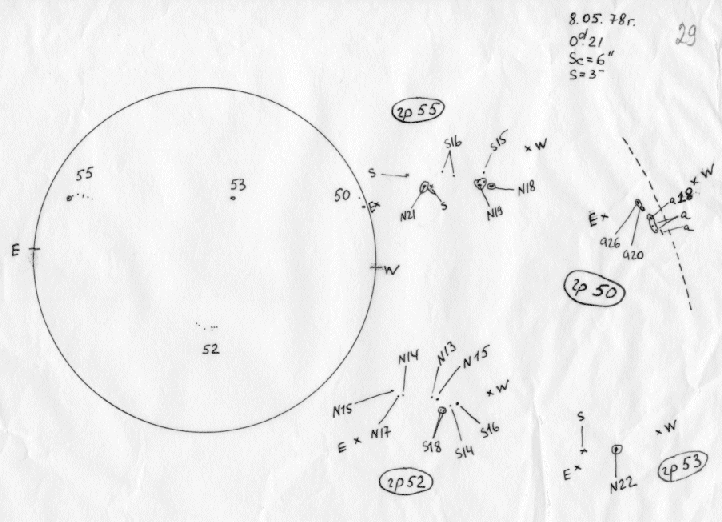 8.05.78г.
29
0ᵈ.21
Sc=6"
S=3"
гр 55
S16
S15
W
S
N18
N21
S
N19
55
53
50
E
E
W
52
W
E
a28
a
a
a26
a20
гр 50
N14
N13
N15
W
N15
N17
E
S18
S14
S16
гр 52
S
W
E
N22
гр 53